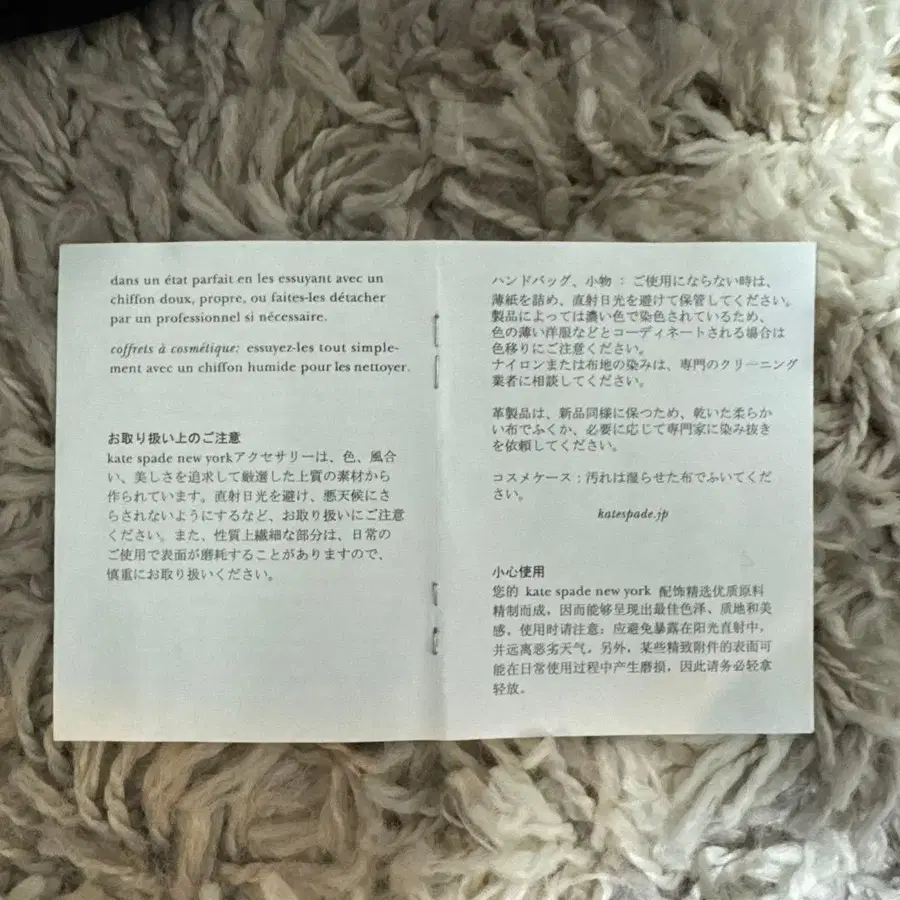 dans un état parfait en les essuyant avec un
chiffon doux, propre, ou faites-les détacher
par un professionnel si nécessaire.
coffrets à cosmétique: essuyez-les tout simple-
ment avec un chiffon humide pour les nettoyer.
お取り扱い上のご注意
kate spade new yorkアクセサリーは、色、風合
い、美しさを追求して厳選した上質の素材から
作られています。直射日光を避け、悪天候にさ
らされないようにするなど、お取り扱いにご注意
ください。また、性質上繊細な部分は、日常の
ご使用で表面が磨耗することがありますので、
慎重にお取り扱いください。
ハンドバッグ、小物：ご使用にならない時は、
薄紙を詰め、直射日光を避けて保管してください。
製品によっては濃い色で染色されているため、
色の薄い洋服などとコーディネートされる場合は
色移りにご注意ください。
ナイロンまたは布地の染みは、専門のクリーニング
業者に相談してください。
革製品は、新品同様に保つため、乾いた柔らか
い布でふくか、必要に応じて専門家に染み抜き
を依頼してください。
コスメケース：汚れは湿らせた布でふいてくだ
さい。
katespade.jp
小心使用
您的 kate spade new york 配饰精选优质原料
精制而成，因而能够呈现出最佳色泽、质地和美
感。使用时请注意：应避免暴露在阳光直射中，
并远离恶劣天气。另外，某些精致附件的表面可
能在日常使用过程中产生磨损，因此请务必轻拿
轻放。